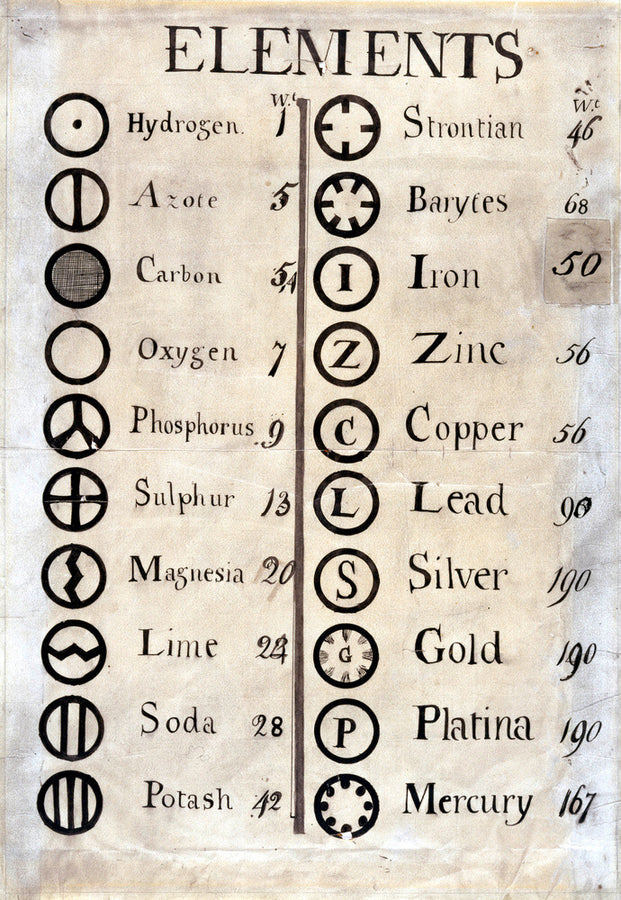 ELEMENTS
Wt
Hydrogen. 1
Azote 5
Carbon 5,4
Oxygen 7
Phosphorus 9
Sulphur 13
Magnesia 20
Lime
Soda 28
Potash 42
Wt
Strontian 46
Barytes 68
I Iron 50
Z Zinc 56
C Copper 56
L Lead
S Silver 190
G Gold 190
P Platina 190
Mercury 167